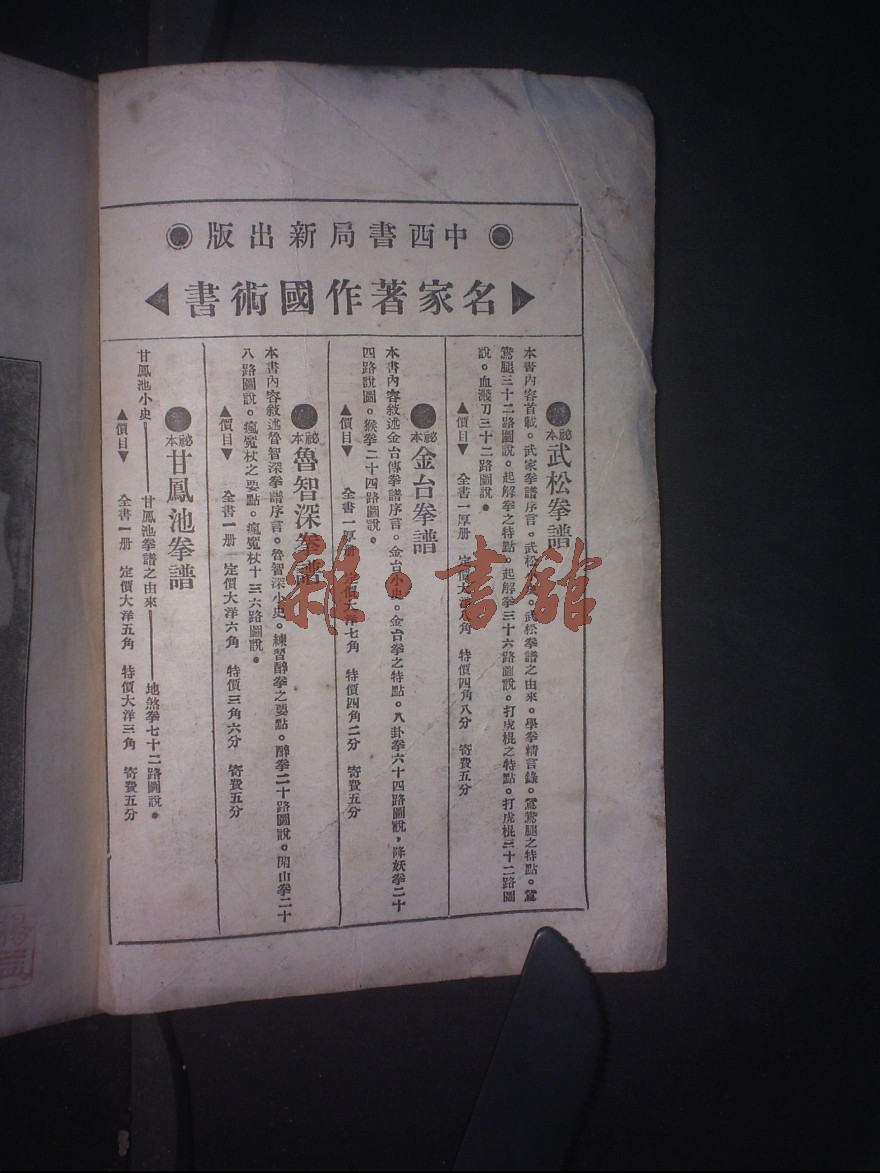 中西書局新出版
名家著作國術書
祕本 武松拳譜
本書內容首載。武家拳譜序言。武松小史。武松拳譜之由來。學拳精言錄。鴛鴦腿之特點。鴛
鴦腿三十二路圖說。起解拳之特點。起解拳三十六路圖說。打虎棍之特點。打虎棍三十二路圖
說。血濺刀三十二路圖說。
▲價目▼ 全書一厚册 定價大洋八角 特價四角八分 寄費五分
祕本 金台拳譜
本書內容敘述金台傳拳譜序言。金台小史。金台拳之特點。八卦拳六十四路圖說，降妖拳二十
四路說圖。猴拳二十四路圖說。
▲價目▼ 全書一厚册 定價大洋七角 特價四角二分 寄費五分
祕本 魯智深拳譜
本書內容敘述魯智深拳譜序言。魯智深小史。練習醉拳之要點。醉拳二十路圖說。開山拳二十
八路圖說。瘋魔杖之要點。瘋魔杖十三六路圖說。
▲價目▼ 全書一册 定價大洋六角 特價三角六分 寄費五分
祕本 甘鳳池拳譜
甘鳳池小史——甘鳳池拳譜之由來——地煞拳七十二路圖說。
▲價目▼ 全書一册 定價大洋五角 特價大洋三角 寄費五分
雜·書館